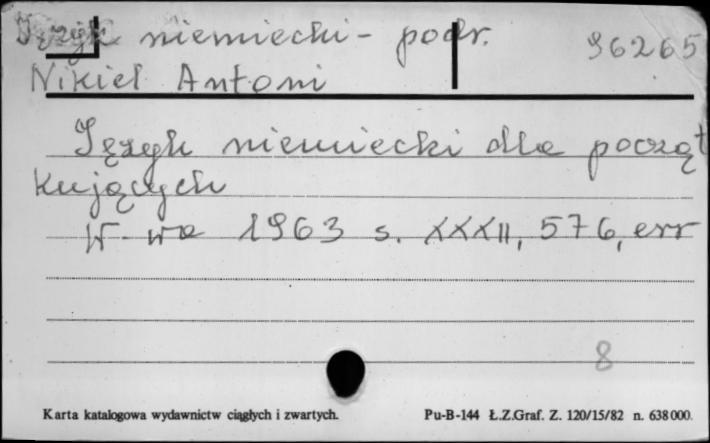 Język niemiecki - podr.
96265
Nikiel Antoni
Język niemiecki dla począt
kujących
W-wa 1963 s. XXXII, 576, err
8
Karta katalogowa wydawnictw ciągłych i zwartych.
Pu-B-144 Ł.Z.Graf. Z. 120/15/82 n. 638000.